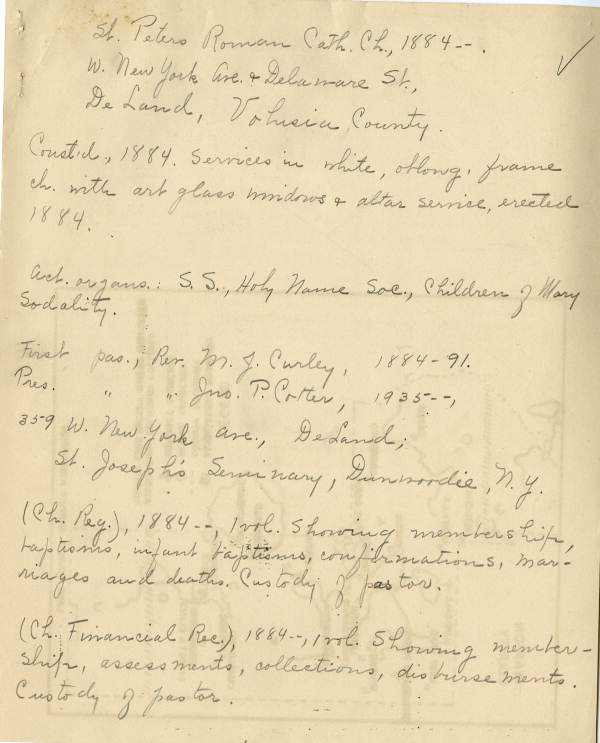 St. Peters Roman Cath. Ch., 1884--.
W. New York Ave. & Delaware St.,
De Land, Volusia County.
Const'd, 1884. Services in white, oblong, frame
ch. with art glass windows & altar service, erected
1884.
Act. organs.: S. S., Holy Name Soc., Children of Mary
Sodality.
First pas., Rev. M. J. Curley, 1884-91.
Pres. " " Jno. P. Cotter, 1935--,
359 W. New York Ave., DeLand;
St. Joseph's Seminary, Dunwoodie, N.Y.
(Ch. Reg.), 1884--, 1 vol. Showing membership,
baptisms, infant baptisms, confirmations, mar-
riages and deaths. Custody of pastor.
(Ch. Financial Rec.), 1884--, 1 vol. Showing member-
ship, assessments, collections, disbursements.
Custody of pastor.